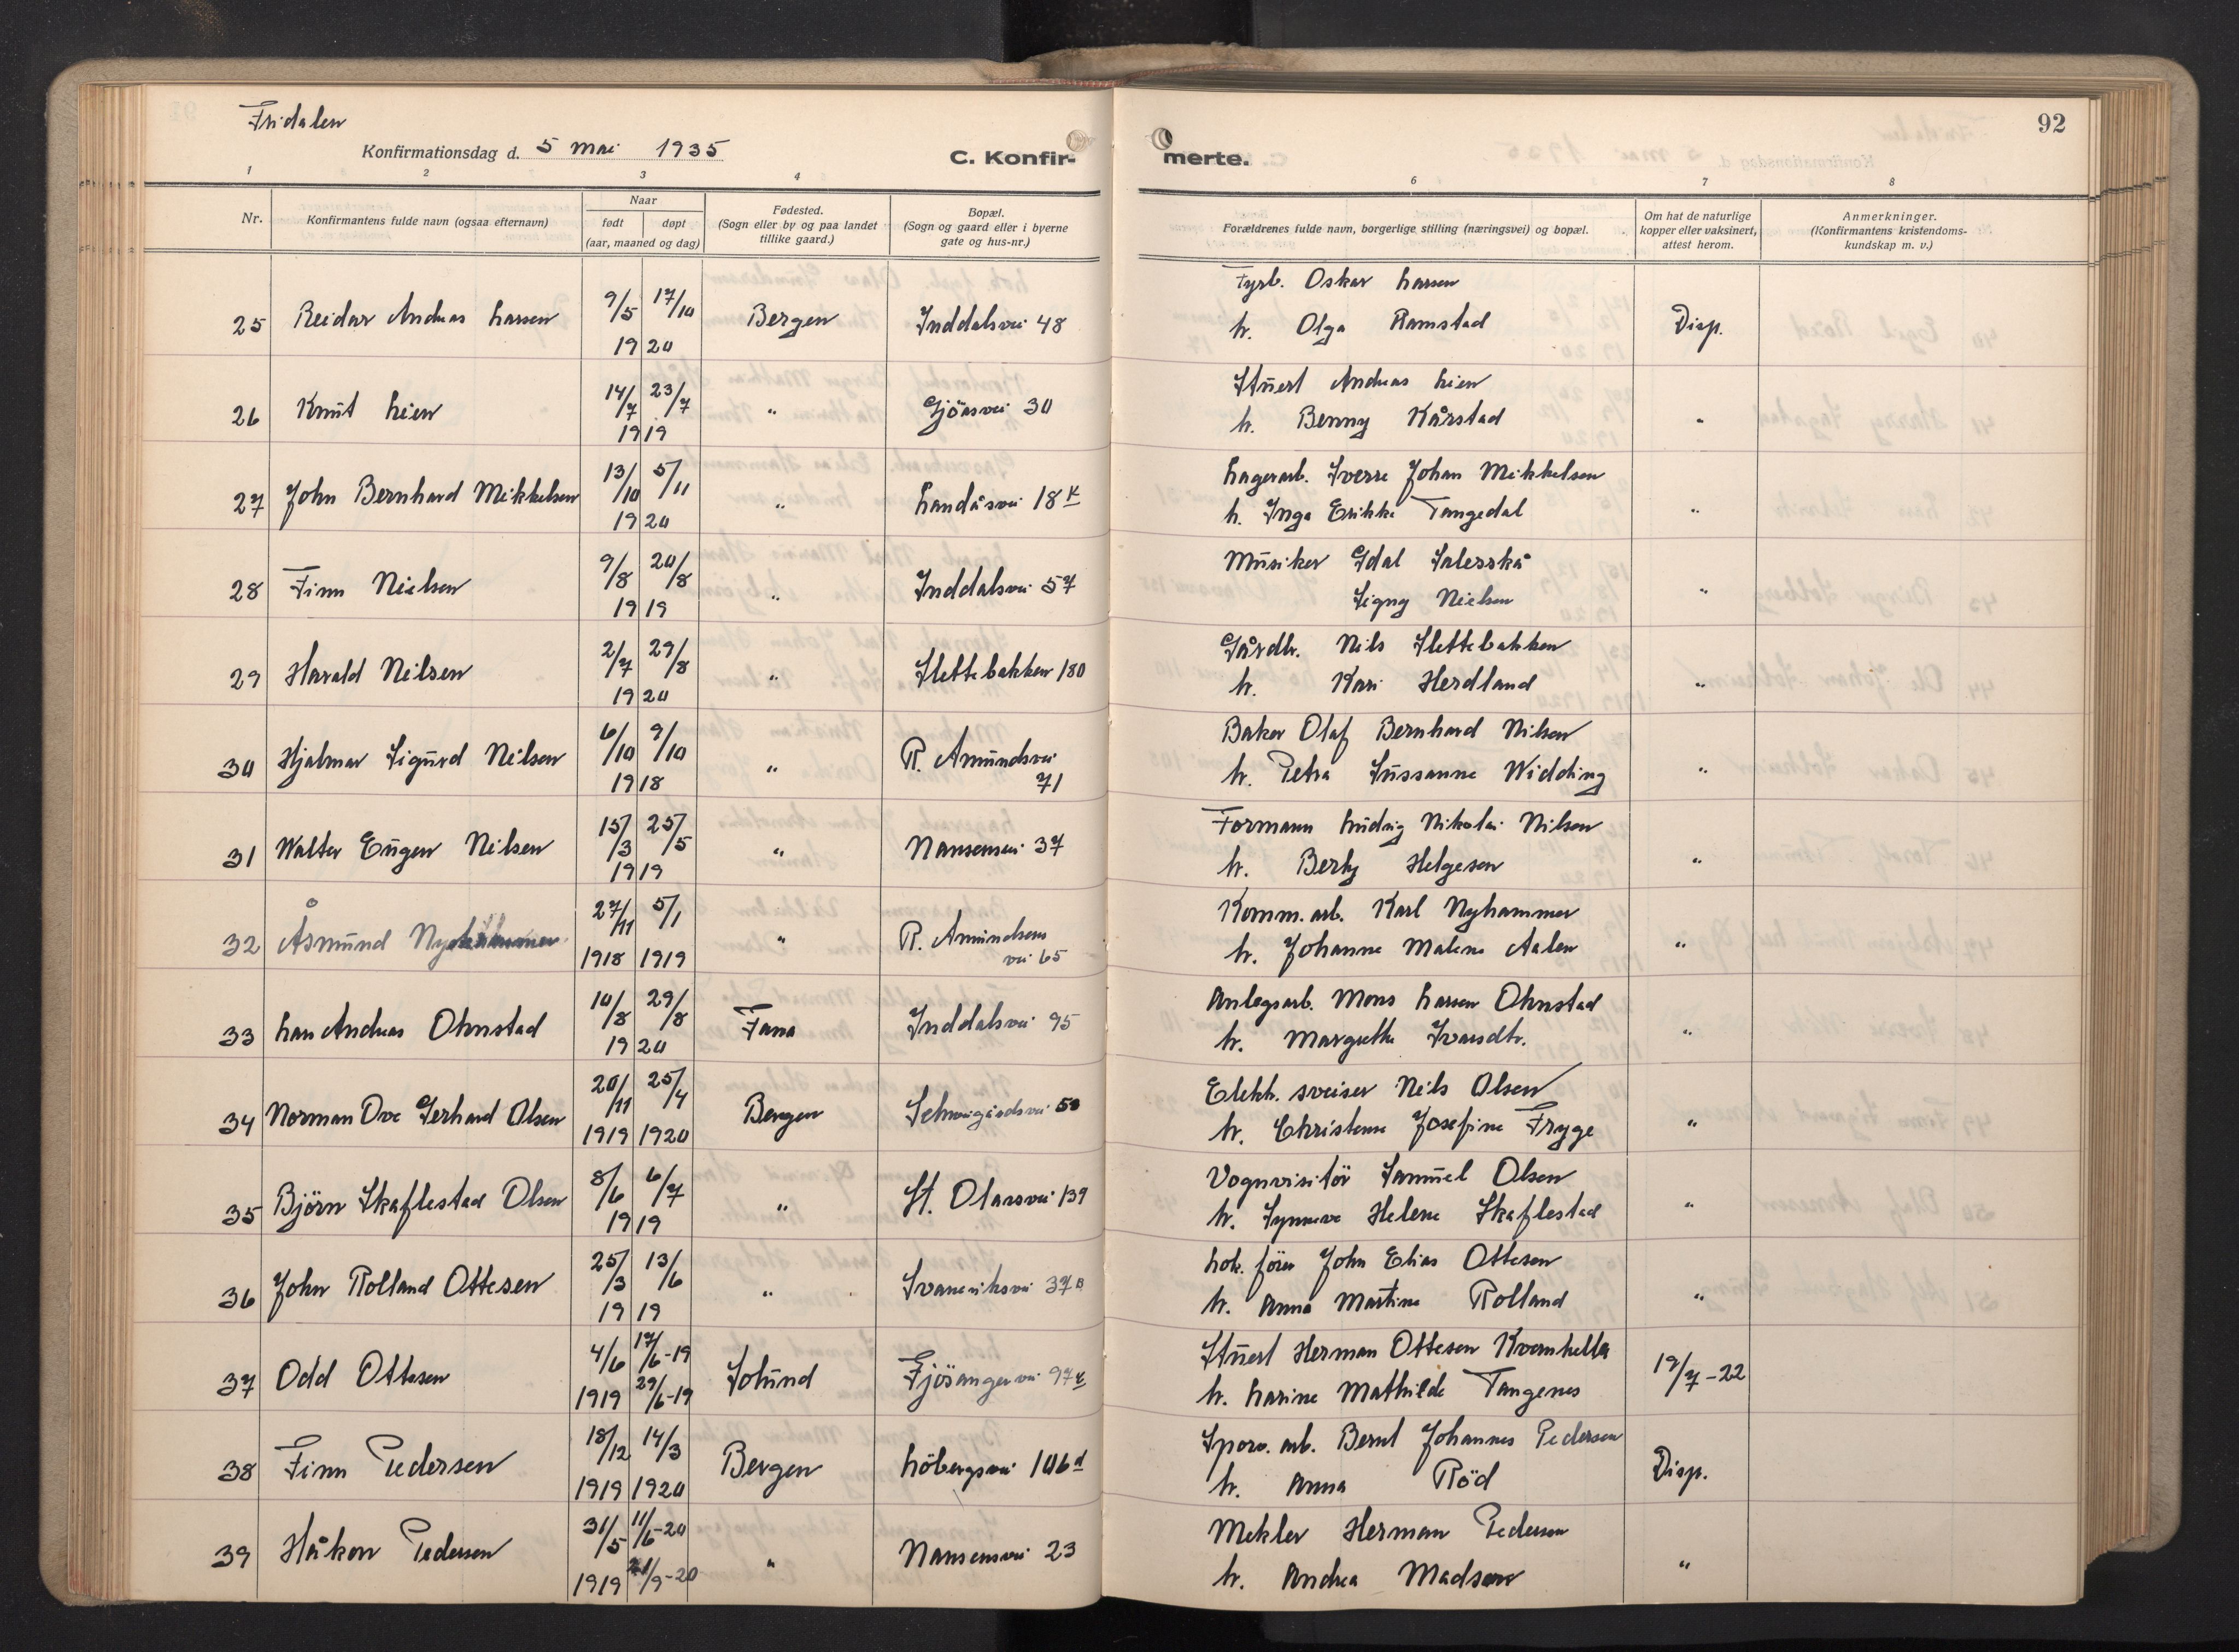 Fridalen
92
Konfirmationsdag d. 5 mai 1935
C. Konfir- merte.
1 2 3 4 6 7 8
Nr.
Konfirmantens fulde navn (ogsaa efternavn)
Naar
født døpt
(aar, maaned og dag)
Fødested.
(Sogn eller by og paa landet
tillike gaard.)
Bopæl.
(Sogn og gaard eller i byerne
gate og hus-nr.)
Forældrenes fulde navn, borgerlige stilling (næringsvei) og bopæl.
Om hat de naturlige
kopper eller vaksinert,
attest herom.
Anmerkninger.
(Konfirmantens kristendoms-
kundskap m. v.)
Fyrb. Oskar Larsen
25 Reidar Andreas Larsen 9/5 17/10 Bergen Inddalsvei 48 h. Olga Ramstad Disp.
19 20
Stuert Andreas Lien
26 Knut Lien 14/7 23/7 " Gjöasvei 30 h. Benny Kårstad "
19 19
Lagerarb. Sverre Johan Mikkelsen
27 John Bernhard Mikkelsen 13/10 5/11 " Landåsvei 18 h. Inga Erikke Tangedal "
19 20
Musiker Idal Salesskå
28 Finn Nielsen 9/8 20/8 " Inddalsvei 57 Signy Nielsen "
19 19
Gårdbr. Nils Slettebakken
29 Harald Nilsen 2/7 29/8 " Slettebakken 180 h. Kari Herdland "
19 20
Baker Olaf Bernhard Nilsen
30 Hjalmar Sigurd Nilsen 6/10 9/10 " R. Amundsvei h. Petra Sussanne Widding "
19 18 71
Formann Ludvig Nikolai Nilsen
31 Walter Eugen Nilsen 15/3 25/5 " Nansensvei 37 h. Berty Helgesen "
19 19
Komm. arb. Karl Nyhammer
32 Åsmund Nyhammer 27/11 5/1 " R. Amundsens h. Johanne Malene Aalen "
1918 1919 vei 65
Anlegsarb. Mons Larsen Ohnstad
33 Lars Andreas Ohnstad 10/8 29/8 Fana Inddalsvei 95 h. Margrethe Ivarsdtr. "
19 20
Elektr. sveiser Nils Olsen
34 Norman Ove Gerhard Olsen 20/11 25/4 Bergen Schweigårdsvei 58 h. Christense Josefine Fryge "
1919 1920
Vognvisitör Samuel Olsen
35 Björn Skaflestad Olsen 8/6 6/7 " St. Olavsvei 139 h. Synneve Helene Skaflestad "
19 19
Lok. förer John Elias Ottesen
36 John Rolland Ottesen 25/3 13/6 " Svaneviksvei 37 B h. Anna Martine Rolland "
19 19
Stuert Herman Ottesen Kvernhella
37 Odd Ottesen 4/6 17/6-19 Solund Fjösangervei 97 h. Larine Mathilde Tangenes 19/7-22
1919 29/6-19
Sporv. arb. Bernt Johannes Pedersen
38 Finn Pedersen 18/12 14/3 Bergen Löbergsvei 106 d h. Anna Röd Disp.
1919 1920
Mekler Herman Pedersen
39 Håkon Pedersen 31/5 11/6-20 " Nansensvei 23 h. Andrea Madsen "
1919 21/9-20